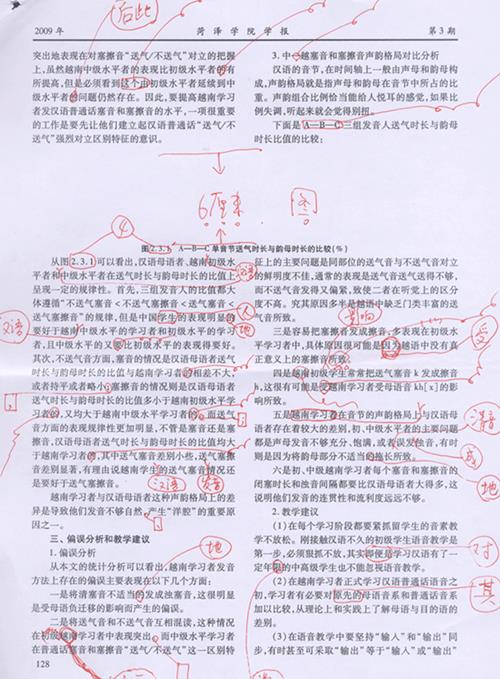 后此
2009 年
菏泽学院学报
第 3 期
突出地表现在对塞擦音“送气/不送气”对立的把握
上,虽然越南中级水平者的表现比初级水平者有
所提高,但是必须看到这个由初级水平者延续到中
级水平者的问题仍然存在。因此,要提高越南学习
者发汉语普通话塞音和塞擦音的水平,一项很重要
的工作是要先让他们建立起汉语普通话“送气/不
送气”强烈对立区别特征的意识。
3. 中—越塞音和塞擦音声韵格局对比分析
汉语的音节,在时间轴上一般由声母和韵母构
成,声韵格局就是指声母和韵母在音节中所占的比
重。声韵组合比例恰当能给人悦耳的感觉,如果比
例失调,听起来就会觉得别扭。
下面是 A—B—C 三组发音人送气时长与韵母时
长比值的比较:
6厘米
图
4
图 2.3.1 A—B—C 单音节送气时长与韵母时长的比较(%)
从图 2.3.1 可以看出,汉语母语者、越南初级水
平者和中级水平者在送气时长与韵母时长的比值上
呈现一定的规律性。首先,三组发音人的比值都大
体遵循“不送气塞音<不送气塞擦音<送气塞音<
送气塞擦音”的规律,但是中国学生的表现明显的
要好于越南中级水平的学习者和初级水平的学习
者,且中级水平的又要比初级水平的表现得要好。
其次,不送气音方面,塞音的情况是汉语母语者送气
时长与韵母时长的比值与越南学习者的相差不大,
或者持平或者略小;塞擦音的情况则是汉语母语者
送气时长与韵母时长的比值多小于越南初级水平学
习者的,又均大于越南中级水平学习者的。而送气
音方面的表现规律性更加明显,不管是塞音还是塞
擦音,汉语母语者送气时长与韵母时长的比值均大
于越南学习者的,其中送气塞音差别小些,送气塞擦
音差别显著,有理由说越南学生的送气塞音情况还
是要好于送气塞擦音。
越南学习者与汉语母语者这种声韵格局上的差
异是导致他们发音不够自然,产生“洋腔”的重要原
因之一。
三、偏误分析和教学建议
1. 偏误分析
从本文的统计分析可以看出,越南学习者发音
方法上存在的偏误主要表现在以下几个方面:
一是将清塞音不适当的发成浊塞音,这很明显
是受母语负迁移的影响而产生的偏误。
二是将送气音和不送气音互相混读,这种情况
在初级越南学习者中表现突出。而中级水平学习者
在普通话塞音和塞擦音“送气/不送气”这一区别特
128
征上的主要问题是同部位的送气音与不送气音对立
的鲜明度不佳,通常的表现是送气音送气送得不够,
而不送气音发得又偏紧,致使二者在听觉上的区分
度不高。究其原因多半是越语中缺乏门类丰富的送
气音所致。
三是容易把塞擦音发成擦音,多表现在初级水
平学习者中,具体原因很可能是因为越语中没有真
正意义上的塞擦音所致。
四是越南初级学生常常把送气塞音 k 发成擦音
h,这很有可能是受越南学习者受母语音 kh[x]的影
响所致。
五是越南学习者在音节的声韵格局上与汉语母
语者存在着较大的差别,初、中级水平者的主要问题
都是声母发音不够充分、饱满,或者误发浊音,有时
则是因为将韵母部分不适当的拖长所致。
六是初、中级越南学习者每个塞音和塞擦音的
闭塞时长和浊音间隔都要比汉语母语者大得多,这
说明他们发音的连贯性和流利度远远不够。
2. 教学建议
(1)在每个学习阶段都要紧抓留学生的音素教
学不放松。刚接触汉语不久的初级学生语音教学是
第一步,必须狠抓不放,其实即便是学习汉语有了一
定年限的中高级学生也不能忽视语音教学。
(2)在越南学习者正式学习汉语普通话语音之
初,学习者有必要对原先的母语音系和普通话音系
加以比较,从理论上和实践上了解母语与目的语的
差别。
(3)在语言教学中要坚持“输入”和“输出”同
步,有时甚至可采取“输出”等于“输入”或“输出”
汉语
人
地
影响
受
清音
或
地
对
其
汉语
发音
地